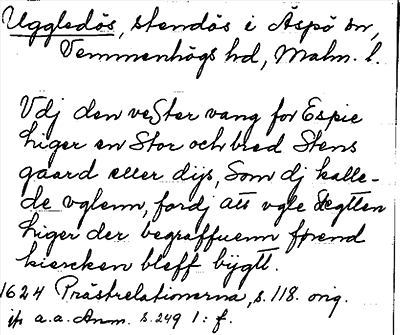 Uggledös, stendös i Äspö sn,
Vemmenhögs hd, Malm. l.
Vdj den vester vang for Espie
liger en Stor och bred Stens
gaard eller dijs, Som dj kalle-
de vglenn, fordj att vgle Slegtten
liger der begraffuenn førend
kiercken bleff bÿgtt.
1624 Prästrelationerna, s. 118. orig.
jfr a.a. Anm. s. 249 l: f.